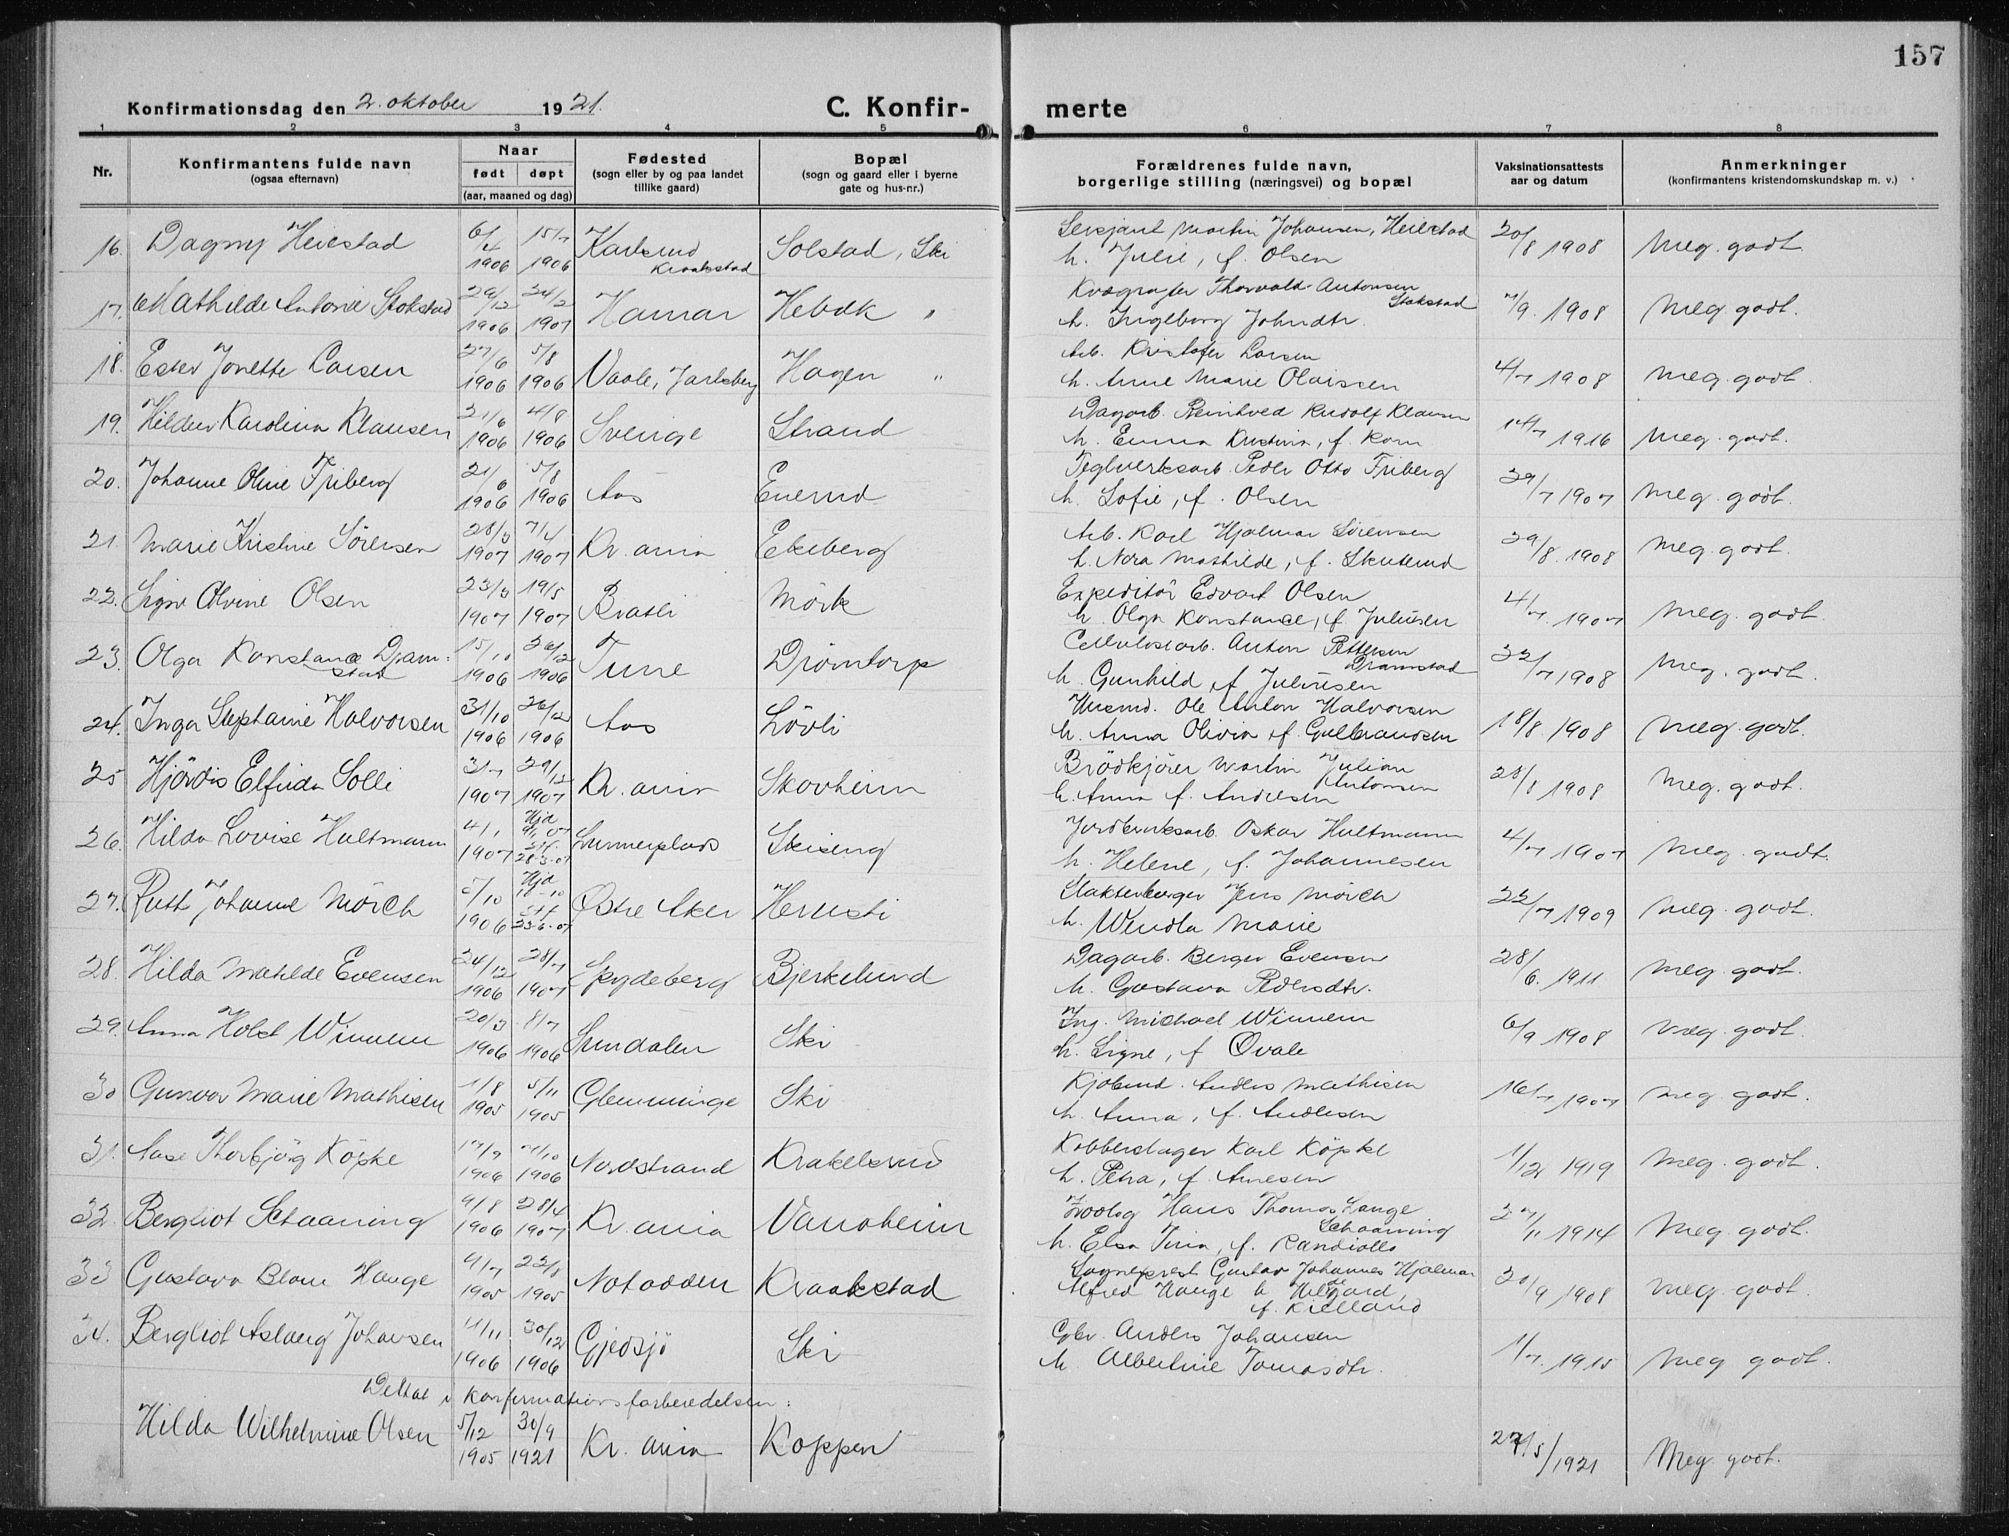 157
Konfirmationsdag den 2. oktober 1921. C. Konfirmerte
1 2 3 4 5 6 7 8
Nr. Konfirmantens fulde navn (ogsaa efternavn) Naar født døpt (aar, maaned og dag) Fødested (sogn eller by og paa landet tillike gaard) Bopæl (sogn og gaard eller i byerne gate og hus-nr.) Forældrenes fulde navn, borgerlige stilling (næringsvei) og bopæl Vaksinationsattests aar og datum Anmerkninger (konfirmantens kristendomskundskap m. v.)
16. Dagny Heiestad 6/4 1906 15/7 1906 Karlsrud Kraakstad Solstad, Ski Sersjant Martin Johansen, Heiestad h. Julie, f. Olsen 20/8 1908 Meg. godt.
17. Mathilde Antonie Stokstad 29/12 1906 24/2 1907 Hamar Hebæk " Thorvald Antonsen Stokstad h. Ingeborg Johndtr. 7/9 1908 Meg. godt.
18. Ester Jonette Larsen 27/6 1906 5/8 1906 Vaale, Jarlsberg Hagen " Arb. Kristofer Larsen h. Anne Marie Olaissen 4/7 1908 Meg. godt.
19. Hildur Karolina Klausen 21/6 1906 4/8 1906 Sverige Strand Dagarb. Reinhard Rudolf Klausen h. Emma Kristina, f. 14/7 1916 Meg. godt.
20. Johanne Oline Friberg 21/6 1906 5/8 1906 Aas Enerud Teglverksarb. Peder Otto Friberg h. Sofie, f. Olsen 29/7 1907 Meg. godt.
21. Marie Kristine Sørensen 28/3 1907 7/4 1907 Kr.ania Ekeberg Arb. Karl Hjalmar Sørensen h. Nora Mathilde, f. Skuterud 29/8 1908 Meg. godt.
22. Signe Alvine Olsen 23/3 1907 19/5 1907 Bratli Mörk Expeditør Edvart Olsen h. Olga Konstance, f. Juliusen 4/7 1907 Meg. godt.
23. Olga Konstance Dramstad 15/10 1906 26/12 1906 Tune Drømtorp Cellulosearb. Anton Pettersen Dramstad h. Gunhild f. Juliusen 22/7 1908 Meg. godt.
24. Inga Stephanie Halvorsen 31/10 1906 26/12 1906 Aas Lövli Husmd. Ole Anton Halvorsen h. Anna Olivia f. Gulbrandsen 18/8 1908 Meg. godt.
25 Hjördis Elfrida Solli 3/7 1907 29/12 1907 Kr.ania Skovheim Brödkjörer Martin Julian Antonsen h. Anna f. Andersen 28/8 1908 Meg. godt.
26. Hilda Lovise Hultmann 4/1 1907 Hjd Stf. 28-3-07 Skiseng Jordbruksarb. Oskar Hultmann h. Helene, f. Johannesen 4/7 1907 Meg. godt.
27. Ruth Johanne Mörch 5/10 1906 Hjd Stf. 23-6-07 Østre Aker Slakterborger Jens Mörch h. Wendla Marie 22/7 1909 Meg. godt.
28. Hilda Matilde Evensen 24/12 1906 28/7 1907 Spydeberg Bjerkelund Dagarb. Berger Evensen h. Gustava Pedersdtr. 28/6 1911 Meg. godt.
29. Anna Holst Winnem 20/3 1906 8/7 1906 Sundalen Ski Ing. Michael Winnem h. Signe, f. Qvale 6/9 1908 Meg. godt
30 Gunvor Marie Mathisen 1/8 1905 5/11 1905 Glemminge Ski Kjøbmd. Anders Mathisen h. Anna, f. Andersen 16/7 1907 Meg. godt.
31. Aase Thorbjörg Köpke 17/7 1906 7/10 1906 Nordstrand Krakelsrud Kobberslager Karl Köpke h. Petra, f. Arnesen 1/12 1919 Meg. godt.
32. Bergliot Schaaning 9/8 1906 28/4 1907 Kr.ania Vandheim Zoolog Hans Thomas Lange Schaaning h. Elsa Tina, f. 27/11 1914 Meg. godt.
33 Gustava Blom Hauge 9/7 1905 1905 Notodden Kraakstad Sogneprest Gustav Johannes Hjalmar Alfred Hauge h. Hildegard, f. Kielland 21/9 1908 Meg. godt.
34. Bergliot Aslaug Johansen 4/11 1906 30/12 1906 Gjedsjö Ski Gbr. Anders Johansen h. Albertine Tomasdtr. 1/7 1915 Meg. godt.
Deltat i konfirmationsforberedelsen:
Hilda Wilhelmine Olsen 5/12 1905 30/9 1921 Kr.ania Koppen 27/5/1921 Meg godt.